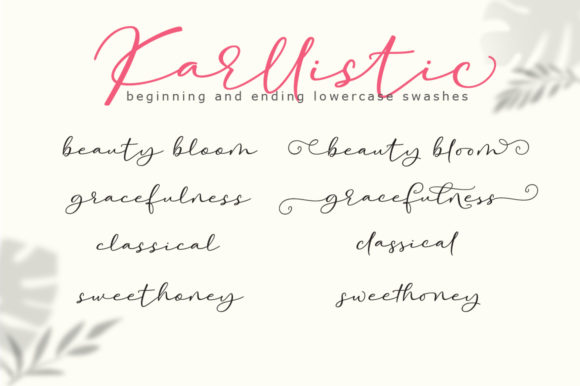 Karllistic
beginning and ending lowercase swashes
beauty bloom beauty bloom
gracefulness gracefulness
classical classical
sweethoney sweethoney